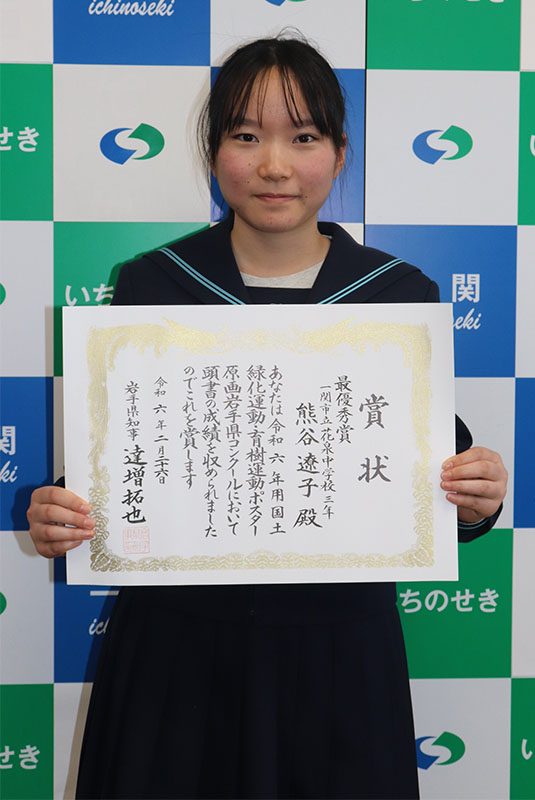 賞状
最優秀賞
一関市立花泉中学校三年
熊谷遼子殿
あなたは令和六年用国土
緑化運動・育樹運動ポスター
原画岩手県コンクールにおいて
頭書の成績を収められました
のでこれを賞します
令和六年二月二十六日
岩手県知事 達増拓也
ichinoseki
いち
せき
いちの
関
ichinoseki
関
inoseki
一
ichi
ちのせき
せき
い